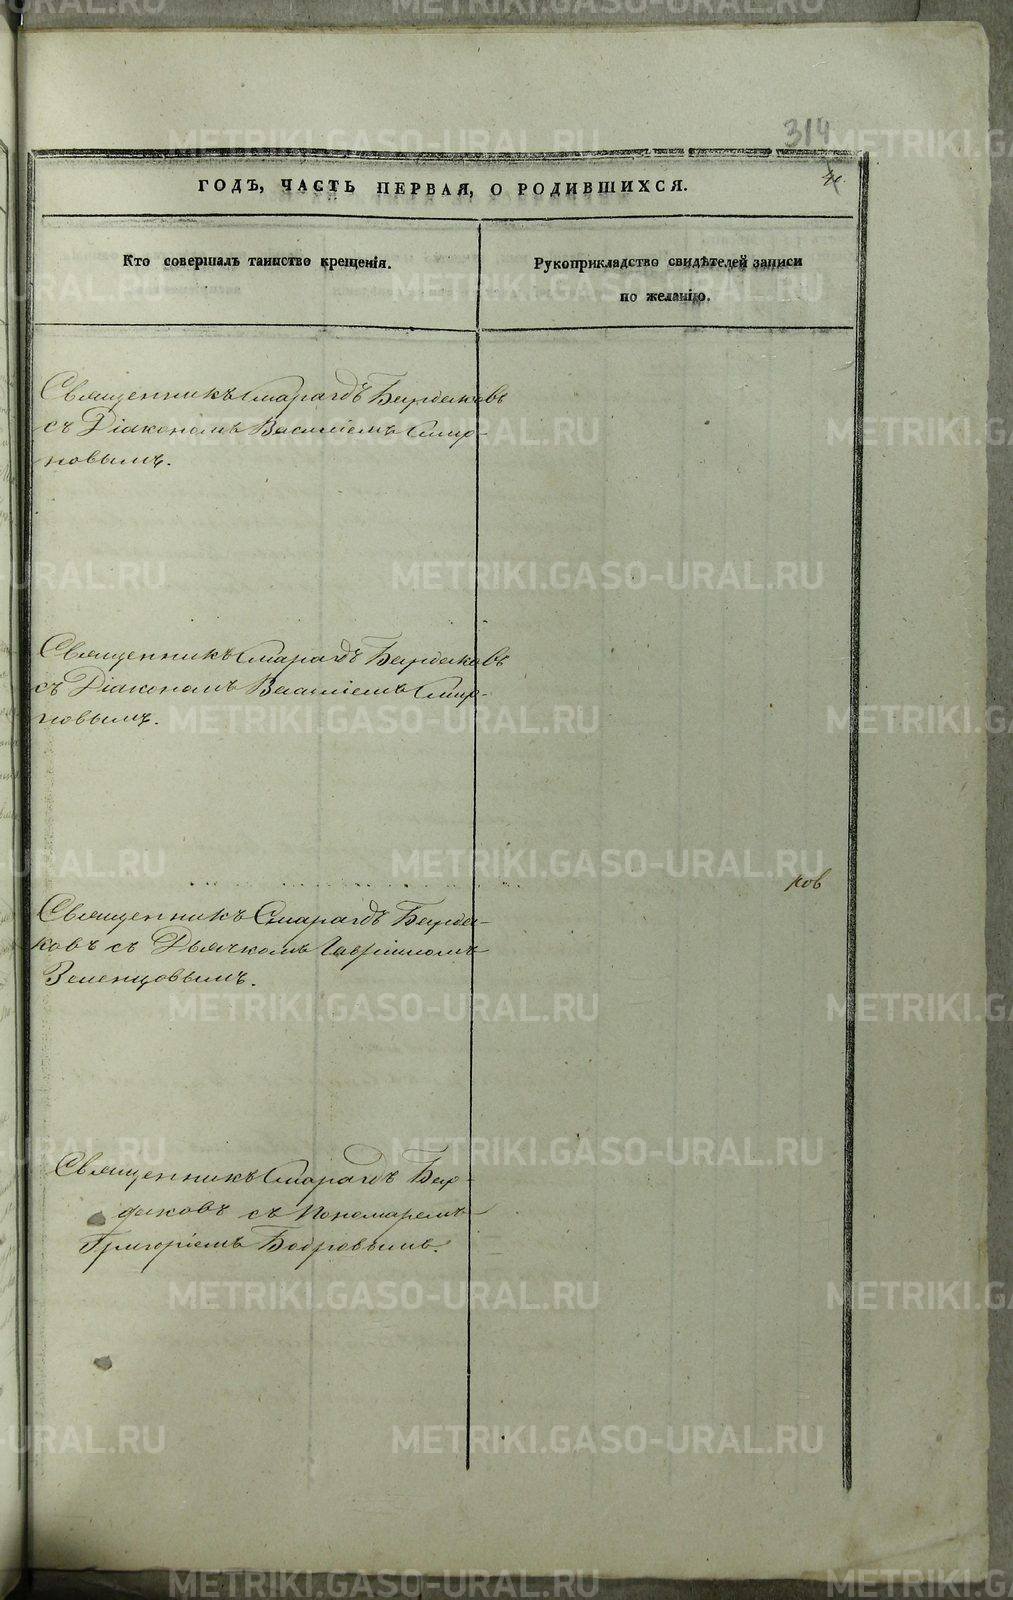 314
ГОДЪ, ЧАСТЬ ПЕРВАЯ, О РОДИВШИХСЯ.
Кто совершалъ таинство крещенія.
Рукоприкладство свидѣтелей записи
по желанію.
Священникъ Смарагдъ Бирюковъ
съ Діакономъ Василіемъ Смир-
новымъ.
Священникъ Смарагдъ Бирюковъ
съ Діакономъ Василіемъ Смир-
новымъ.
ков
Священникъ Смарагдъ
ковъ съ Дьячкомъ Гавріиломъ
Зеленцовымъ.
Священникъ Смарагдъ
съ Пономаремъ
Григоріемъ Бобровымъ.
METRIKI.GASO-URAL.RU